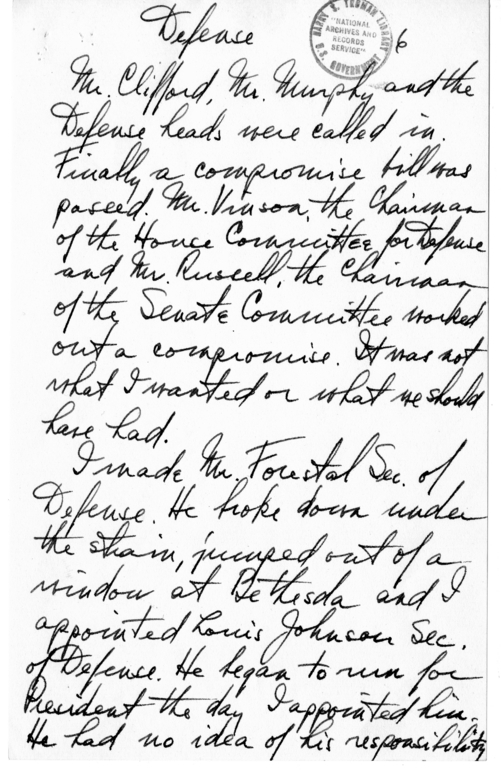 Defense
HARRY S. TRUMAN LIBRARY
"NATIONAL
ARCHIVES AND
RECORDS
SERVICE"
U.S. GOVERNMENT
6
Mr. Clifford, Mr. Murphy and the
Defense heads were called in.
Finally a compromise bill was
passed. Mr. Vinson, the Chairman
of the House Committee for Defense
and Mr. Russell, the Chairman
of the Senate Committee worked
out a compromise. It was not
what I wanted or what we should
have had.
I made Mr. Forestal Sec. of
Defense. He broke down under
the strain, jumped out of a
window at Bethesda and I
appointed Louis Johnson Sec.
of Defense. He began to run for
President the day I appointed him.
He had no idea of his responsibility